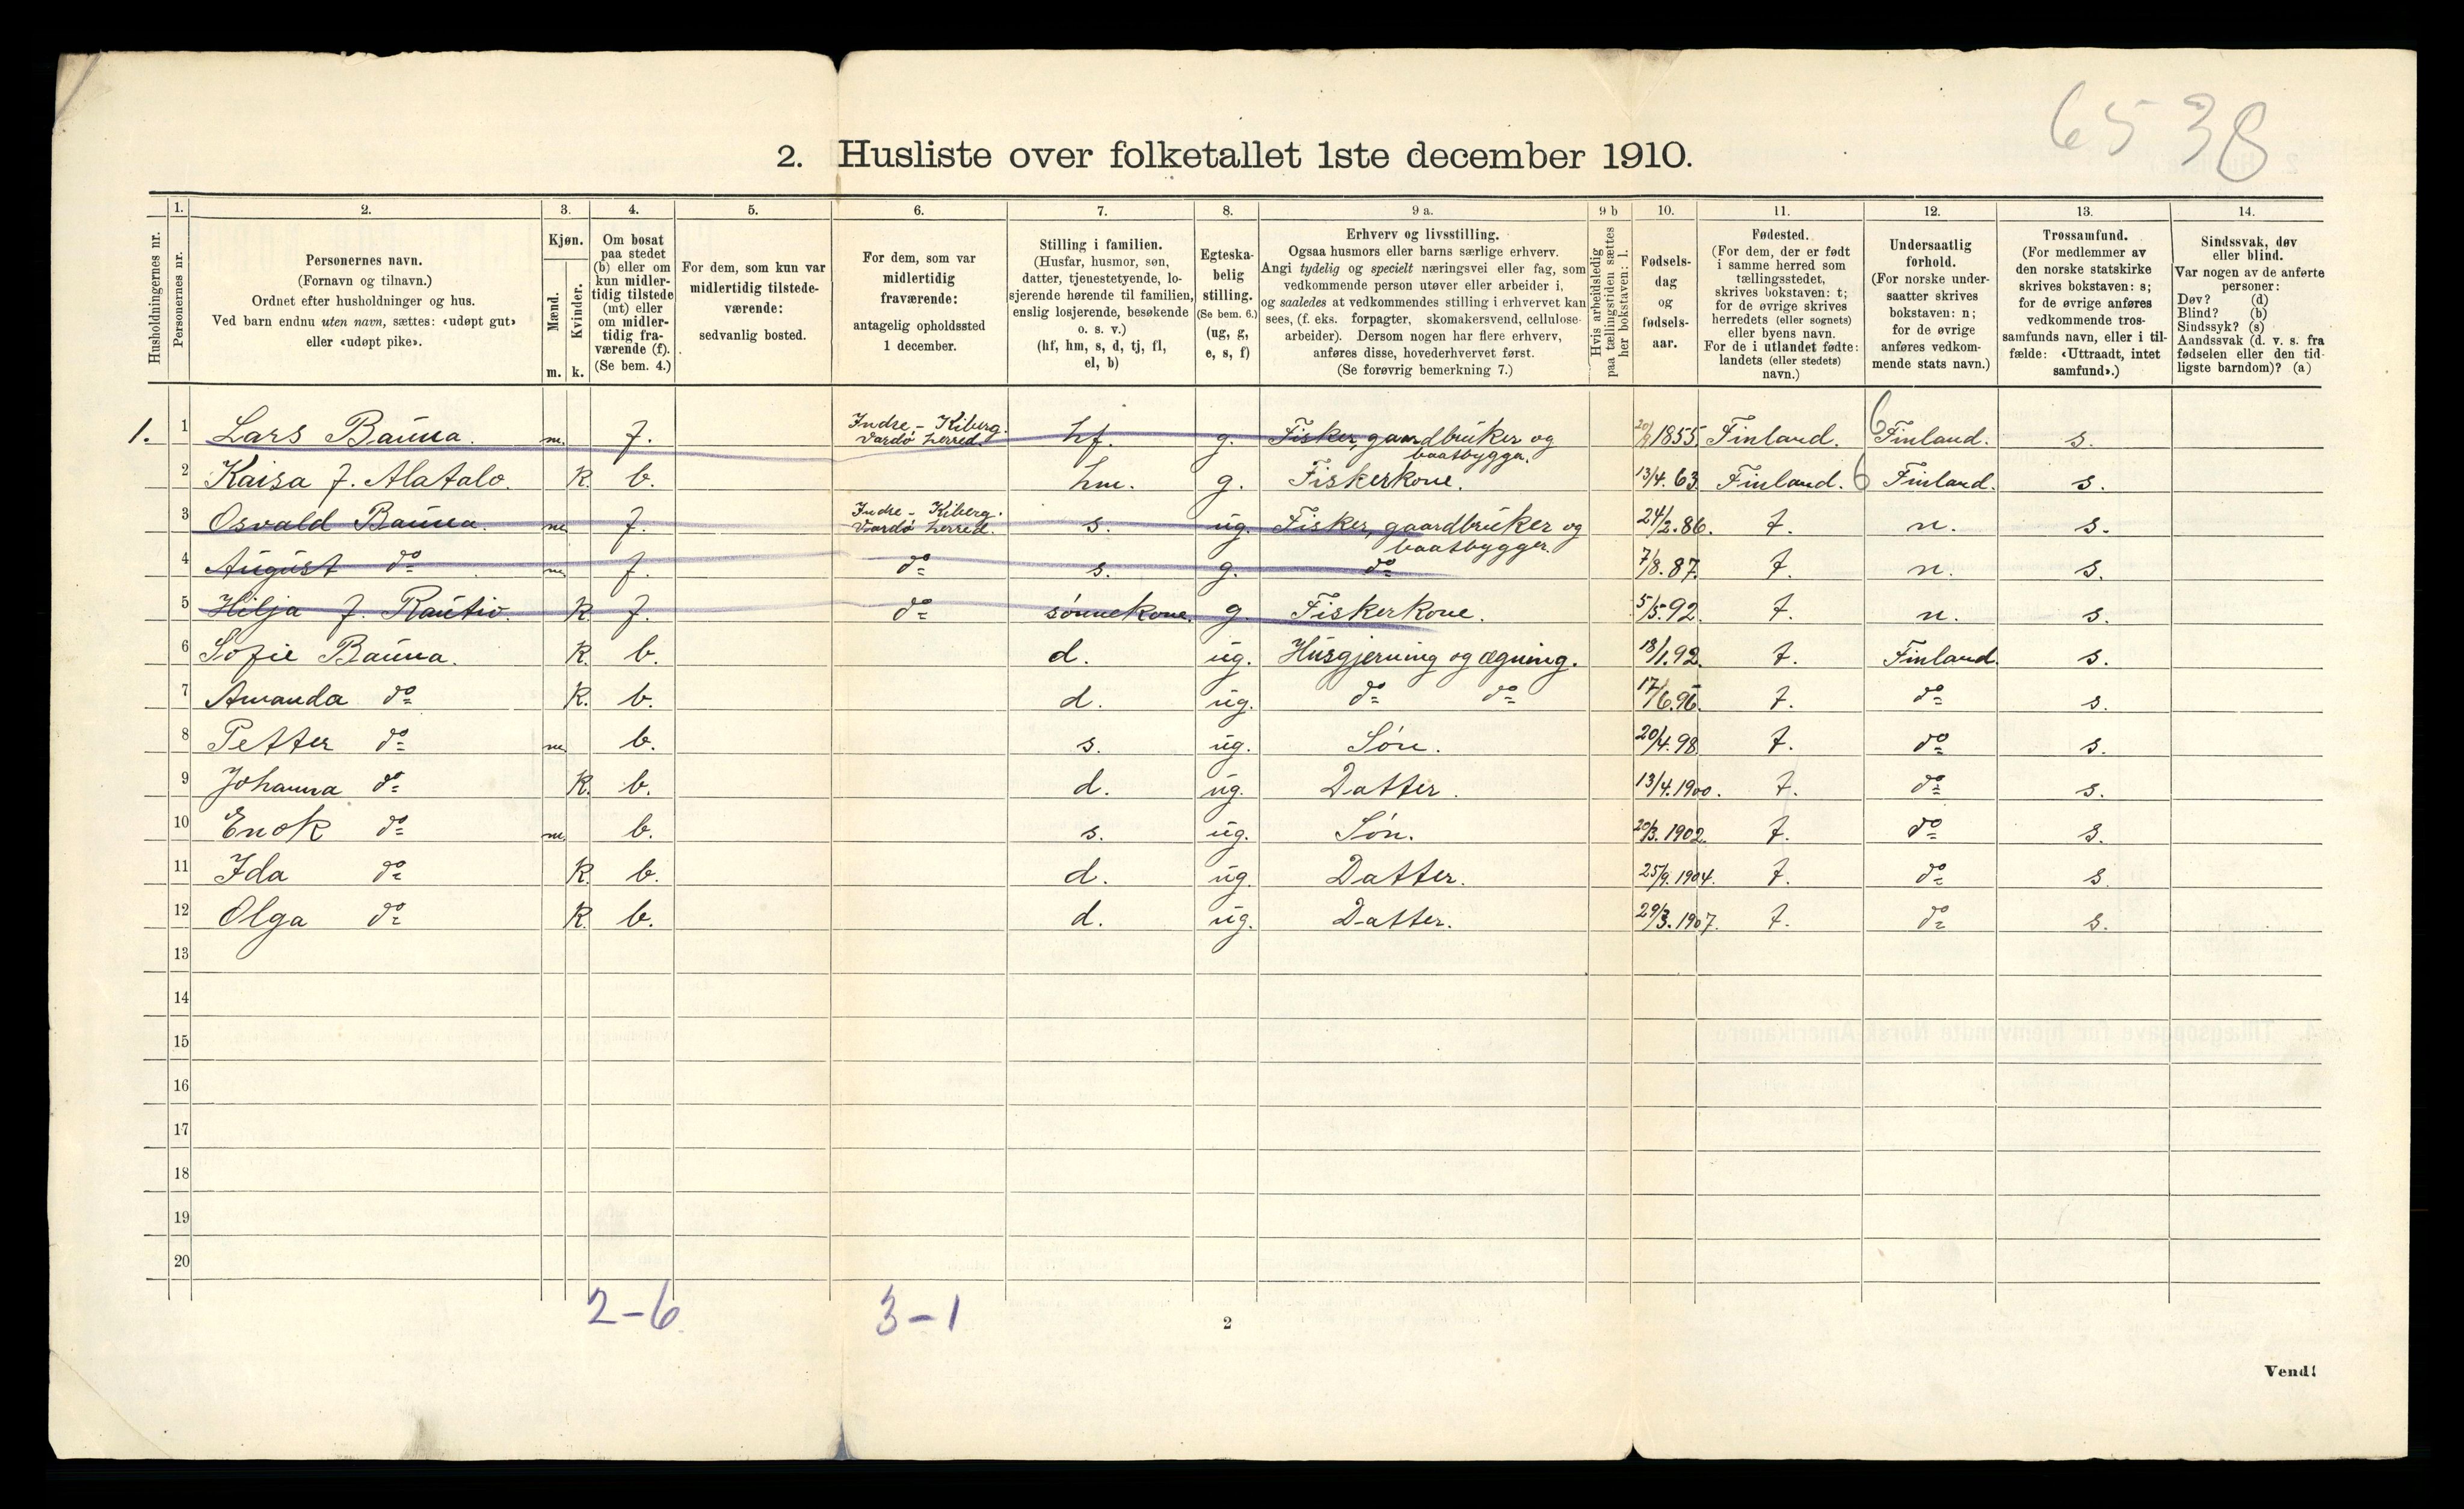 6538
2. Husliste over folketallet 1ste december 1910.
Husholdningernes nr.
1.
Personernes nr.
2.
Personernes navn.
(Fornavn og tilnavn.)
Ordnet efter husholdninger og hus.
Ved barn endnu uten navn, sættes: «udøpt gut»
eller «udøpt pike».
3.
Kjøn.
Mænd.
Kvinder.
m. k.
4.
Om bosat
paa stedet
(b) eller om
kun midler-
tidig tilstede
(mt) eller
om midler-
tidig fra-
værende (f).
(Se bem. 4.)
5.
For dem, som kun var
midlertidig tilstede-
værende:
sedvanlig bosted.
6.
For dem, som var
midlertidig
fraværende:
antagelig opholdssted
1 december.
7.
Stilling i familien.
(Husfar, husmor, søn,
datter, tjenestetyende, lo-
sjerende hørende til familien,
enslig losjerende, besøkende
o. s. v.)
(hf, hm, s, d, tj, fl,
el, b)
8.
Egteska-
belig
stilling.
(Se bem. 6.)
(ug, g,
e, s, f)
9 a.
Erhverv og livsstilling.
Ogsaa husmors eller barns særlige erhverv.
Angi tydelig og specielt næringsvei eller fag, som
vedkommende person utøver eller arbeider i,
og saaledes at vedkommendes stilling i erhvervet kan
sees, (f. eks. forpagter, skomakersvend, cellulose-
arbeider). Dersom nogen har flere erhverv,
anføres disse, hovederhvervet først.
(Se forøvrig bemerkning 7.)
9 b
Hvis arbeidsledig
paa tællingstiden sættes
her bokstaven: l.
10.
Fødsels-
dag
og
fødsels-
aar.
11.
Fødested.
(For dem, der er født
i samme herred som
tællingsstedet,
skrives bokstaven: t;
for de øvrige skrives
herredets (eller sognets)
eller byens navn.
For de i utlandet fødte:
landets (eller stedets)
navn.)
12.
Undersaatlig
forhold.
(For norske under-
saatter skrives
bokstaven: n;
for de øvrige
anføres vedkom-
mende stats navn.)
13.
Trossamfund.
(For medlemmer av
den norske statskirke
skrives bokstaven: s;
for de øvrige anføres
vedkommende tros-
samfunds navn, eller i til-
fælde: «Uttraadt, intet
samfund».)
14.
Sindssvak, døv
eller blind.
Var nogen av de anførte
personer:
Døv? (d)
Blind? (b)
Sindssyk? (s)
Aandssvak (d. v. s. fra
fødselen eller den tid-
ligste barndom)? (a)
1. 1 Lars Bauna. m. f. Indre-Kiberg. Vardø herred. hf. g. Fisker, gaardbruker og baatbygger. 1855. Finland. 6 Finland. s.
2 Kaisa f. Alatalo. k. b. hm. g. Fiskerkone. 13/4. 63. Finland. 6 Finland. s.
3 Osvald Bauna. m. f. Indre-Kiberg. Vardø herred. s. ug. Fisker, gaardbruker og baatbygger. 24/2. 86. t. n. s.
4 August do m. f. do s. g. do 7/8. 87. t. n. s.
5 Hilja f. Rautio. k. f. do sønnekone. g. Fiskerkone. 5/5. 92. t. n. s.
6 Sofie Bauna. k. b. d. ug. Husgjerning og egning. 18/1. 92. t. Finland. s.
7 Amanda do k. b. d. ug. do do 17/6. 96. t. do s.
8 Petter do m. b. s. ug. Søn. 20/4. 98. t. do s.
9 Johanna do k. b. d. ug. Datter. 13/4. 1900. t. do s.
10 Enok do m. b. s. ug. Søn. 20/3. 1902. t. do s.
11 Ida do k. b. d. ug. Datter. 25/9. 1904. t. do s.
12 Olga do k. b. d. ug. Datter. 29/3. 1907. t. do s.
13
14
15
16
17
18
19
20
2-6 3-1
2
Vend!